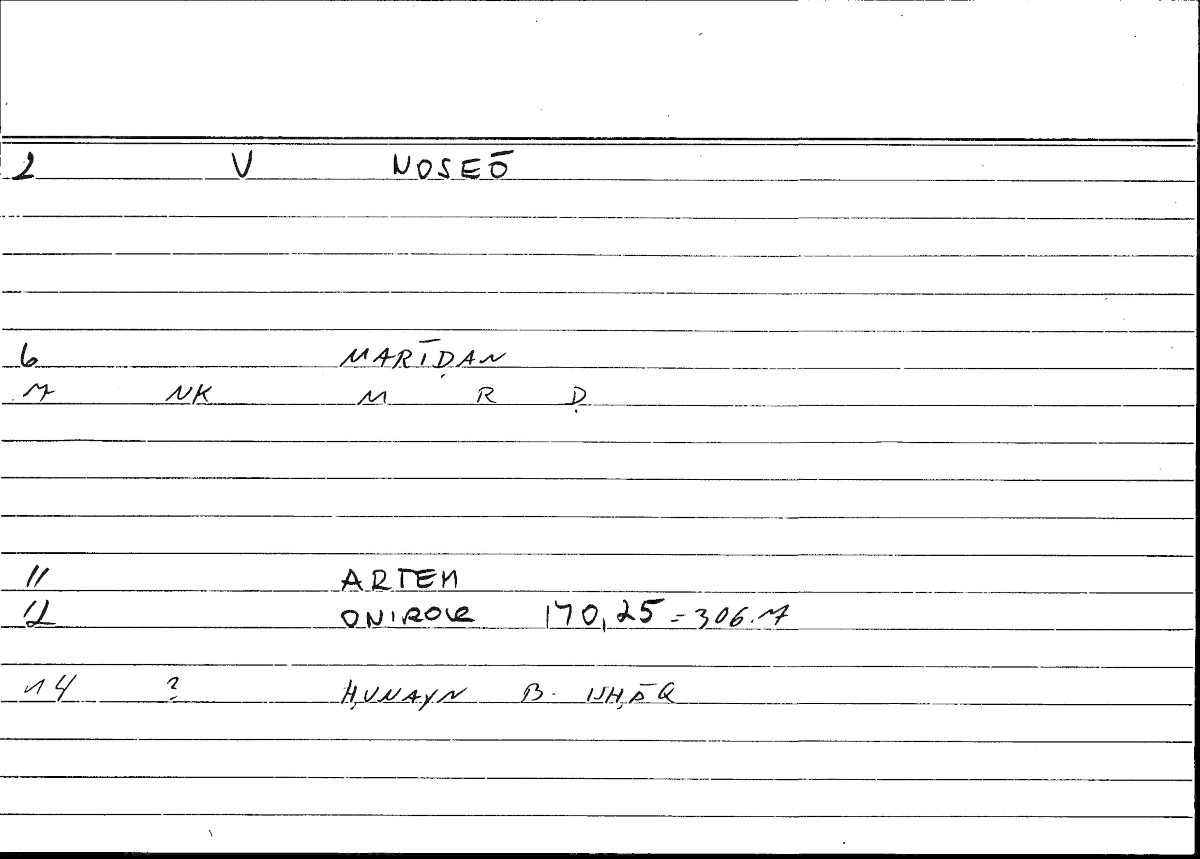 2 V NOSEŌ
6 MARĪḌAN
7 NK M R Ḍ
11 ARTEM
12 ONIROCR 170,25 = 306.17
14 ? ḤUNAYN B. ISḤĀQ